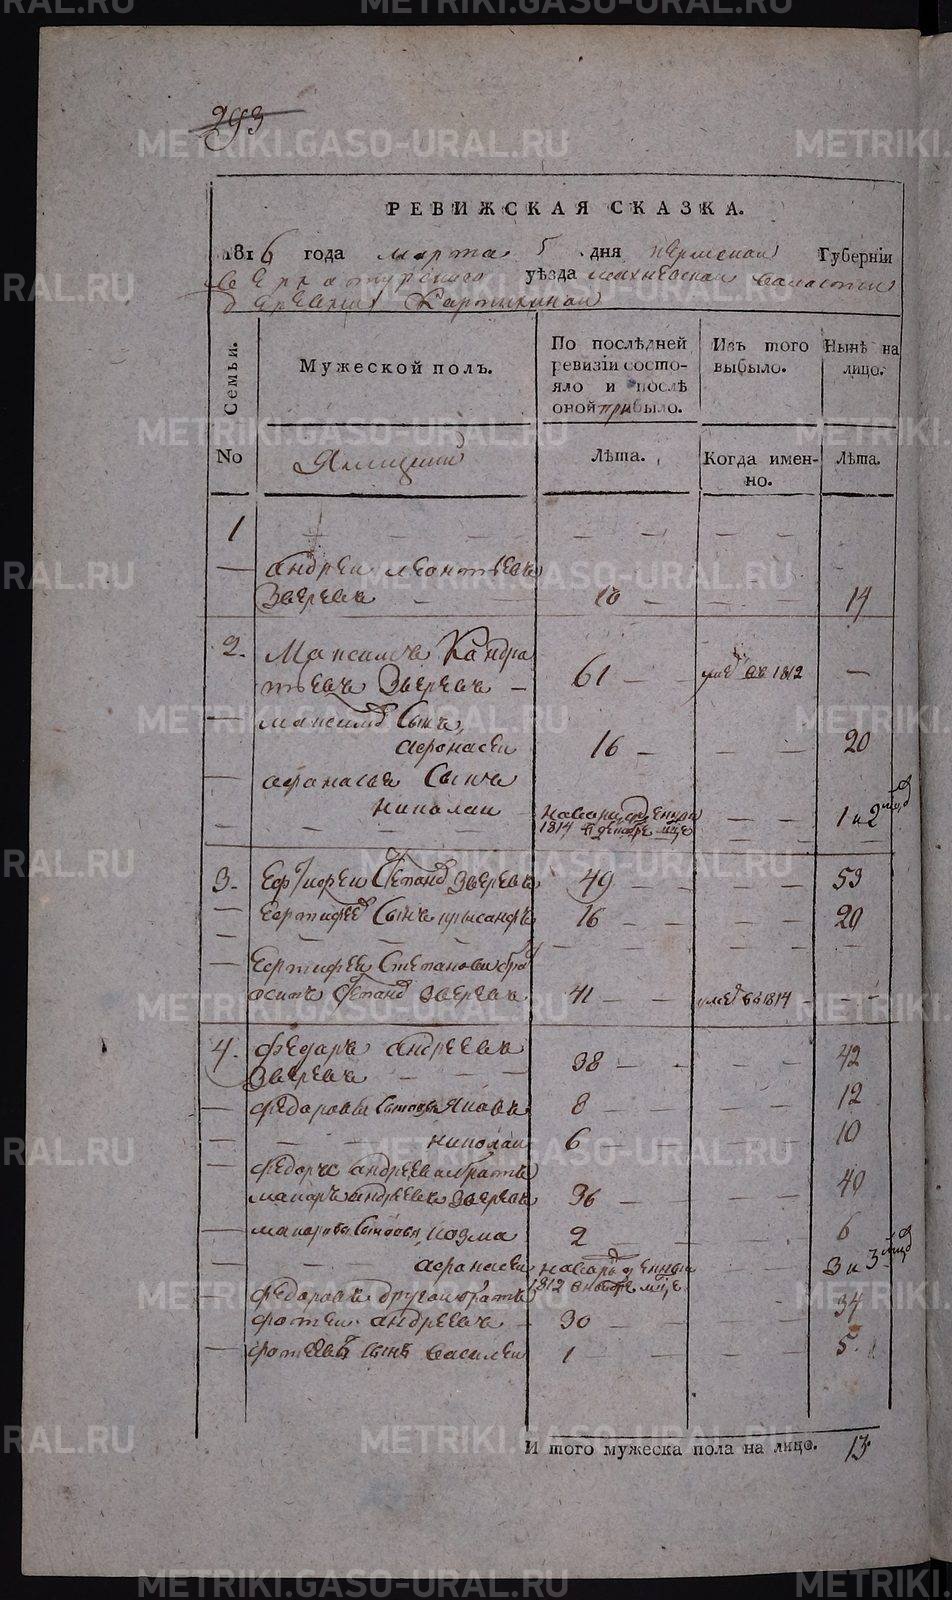 293
РЕВИЖСКАЯ СКАЗКА.
1816 года марта 5 дня пермской Губерніи
Верхотурскаго уѣзда махневской валости
деревни Картикиной
Семьи.
Мужеской полъ.
По послѣдней ревизіи состояло и послѣ оной прибыло.
Изъ того выбыло.
Нынѣ на лицо.
No
Ямщики
Лѣта.
Когда именно.
Лѣта.
1
андреи леонтьевъ
Зверевъ 10 14
2. Максимъ Кандра
тьевъ Зверевъ 61 умре въ 1812 —
максимо Сынъ
афонасеи 16 20
афонасья Сынъ
николаи наварожденныи 1 и 2 мца
1814 декабре мце
3. Степано Зверевъ 49 53
Сынъ 16 20
Степанова брат
осипъ Степано Зверевъ 41 умре въ 1814
4. федаръ андреевъ
Зверевъ 38 42
федоровы Сыновья Яковъ 8 12
николаи 6 10
федоръ андреева братъ
макаръ андреевъ Зверевъ 36 40
макаровы Сыновья Козма 2 6
афонасеи наварожденныи 3 и 3 мца
1812 мце
федоровъ другои братъ
фотеи андреевъ 30 34
фотеевъ сынъ василеи 1 5
И того мужеска пола на лицо. 13
METRIKI.GASO-URAL.RU